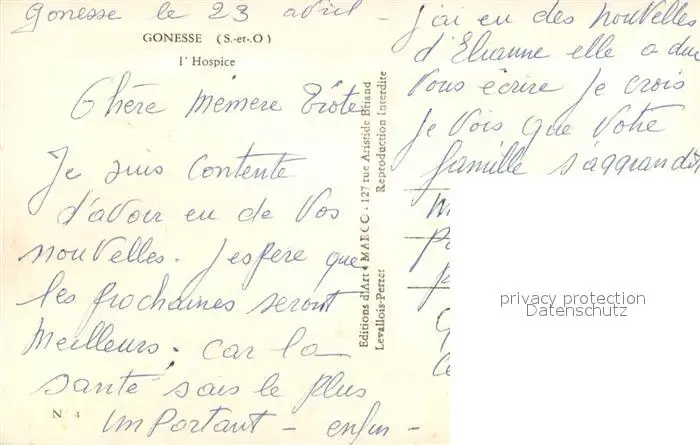 Gonesse le 23 avril -
GONESSE (S.-et-.O)
l'Hospice
Chère mémère Tiote
Je suis contente
d'avoir eu de vos
nouvelles. J'espère que
les prochaines seront
meilleurs. car la
santé sais le plus
N 4
important - enfin -
Editions d'Art MARCO - 127 rue Aristide Briand
Levallois-Perret Reproduction Interdite
j'ai eu des nouvelles
d'Elianne elle a due
vous écrire je crois
je vois que votre
famille s'aggrandit
privacy protection
Datenschutz